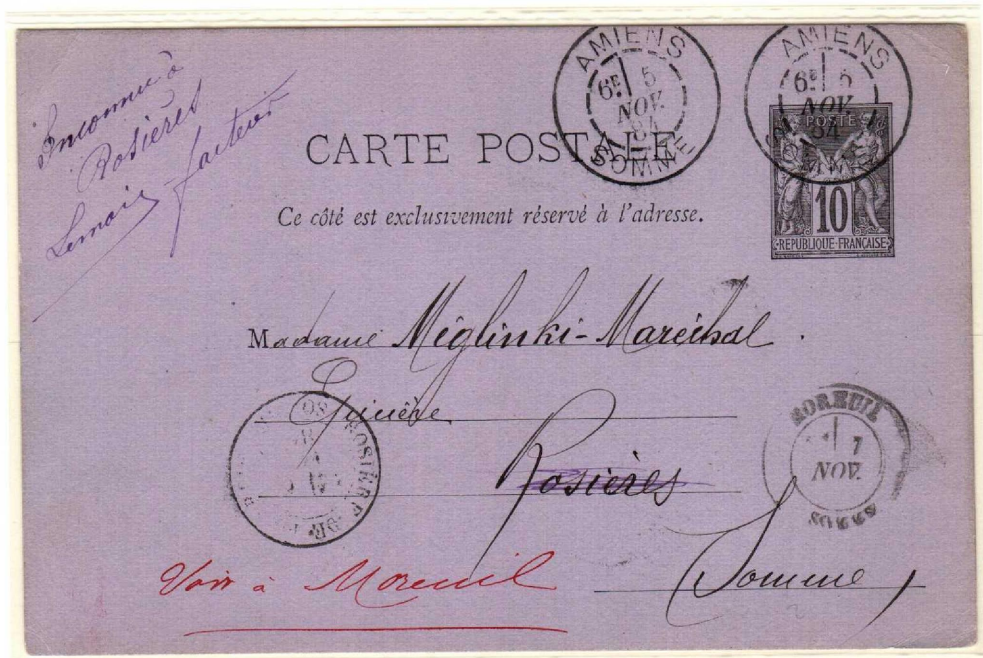 Inconnu à
Rosières
Lemair facteur
AMIENS
6E 5
NOV.
84
SOMME
AMIENS
6E 5
NOV.
84
SOMME
POSTE
10
REPUBLIQUE FRANÇAISE
CARTE POSTALE
Ce côté est exclusivement réservé à l'adresse.
Madame Méglinki-Maréchal
Epicière
Rosières
MOREUIL
7
NOV.
SOMME
Voir à Moreuil
Somme